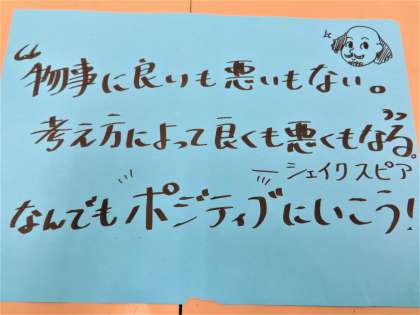 “物事に良いも悪いもない。
考え方によって良くも悪くもなる。”
― シェイクスピア
なんでもポジティブにいこう!